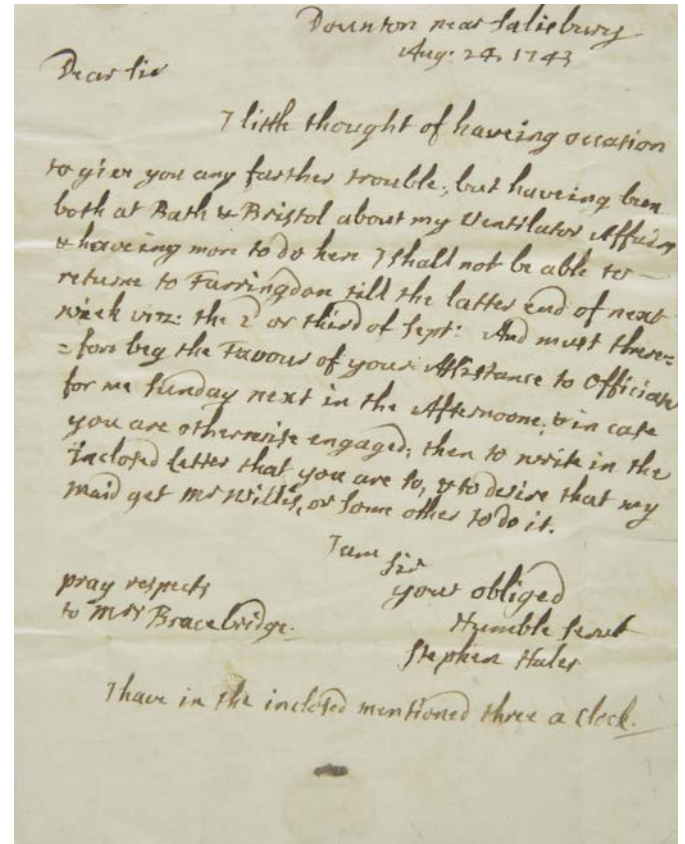 Dounton near Salisbury
Aug: 24, 1743
Dear Sir
I little thought of haveing occasion
to give you any farther trouble, but haveing been
both at Bath & Bristol about my Ventilator Affairs
& haveing more to do here I shall not be able to
returne to Farringdon till the latter end of next
week viz: the 2 or third of Sept: And must there=
=fore beg the Favour of your Assistance to Officiate
for me Sunday next in the Afternoone, & in case
you are otherwise engaged, then to write in the
inclosed letter that you are so, & to desire that my
maid get Mr Willis, or some other to do it.
I am
Sir
your obliged
Humble Servt
Stephen Hales
pray respects
to Mrs Bracebridge.
I have in the inclosed mentioned three a clock.